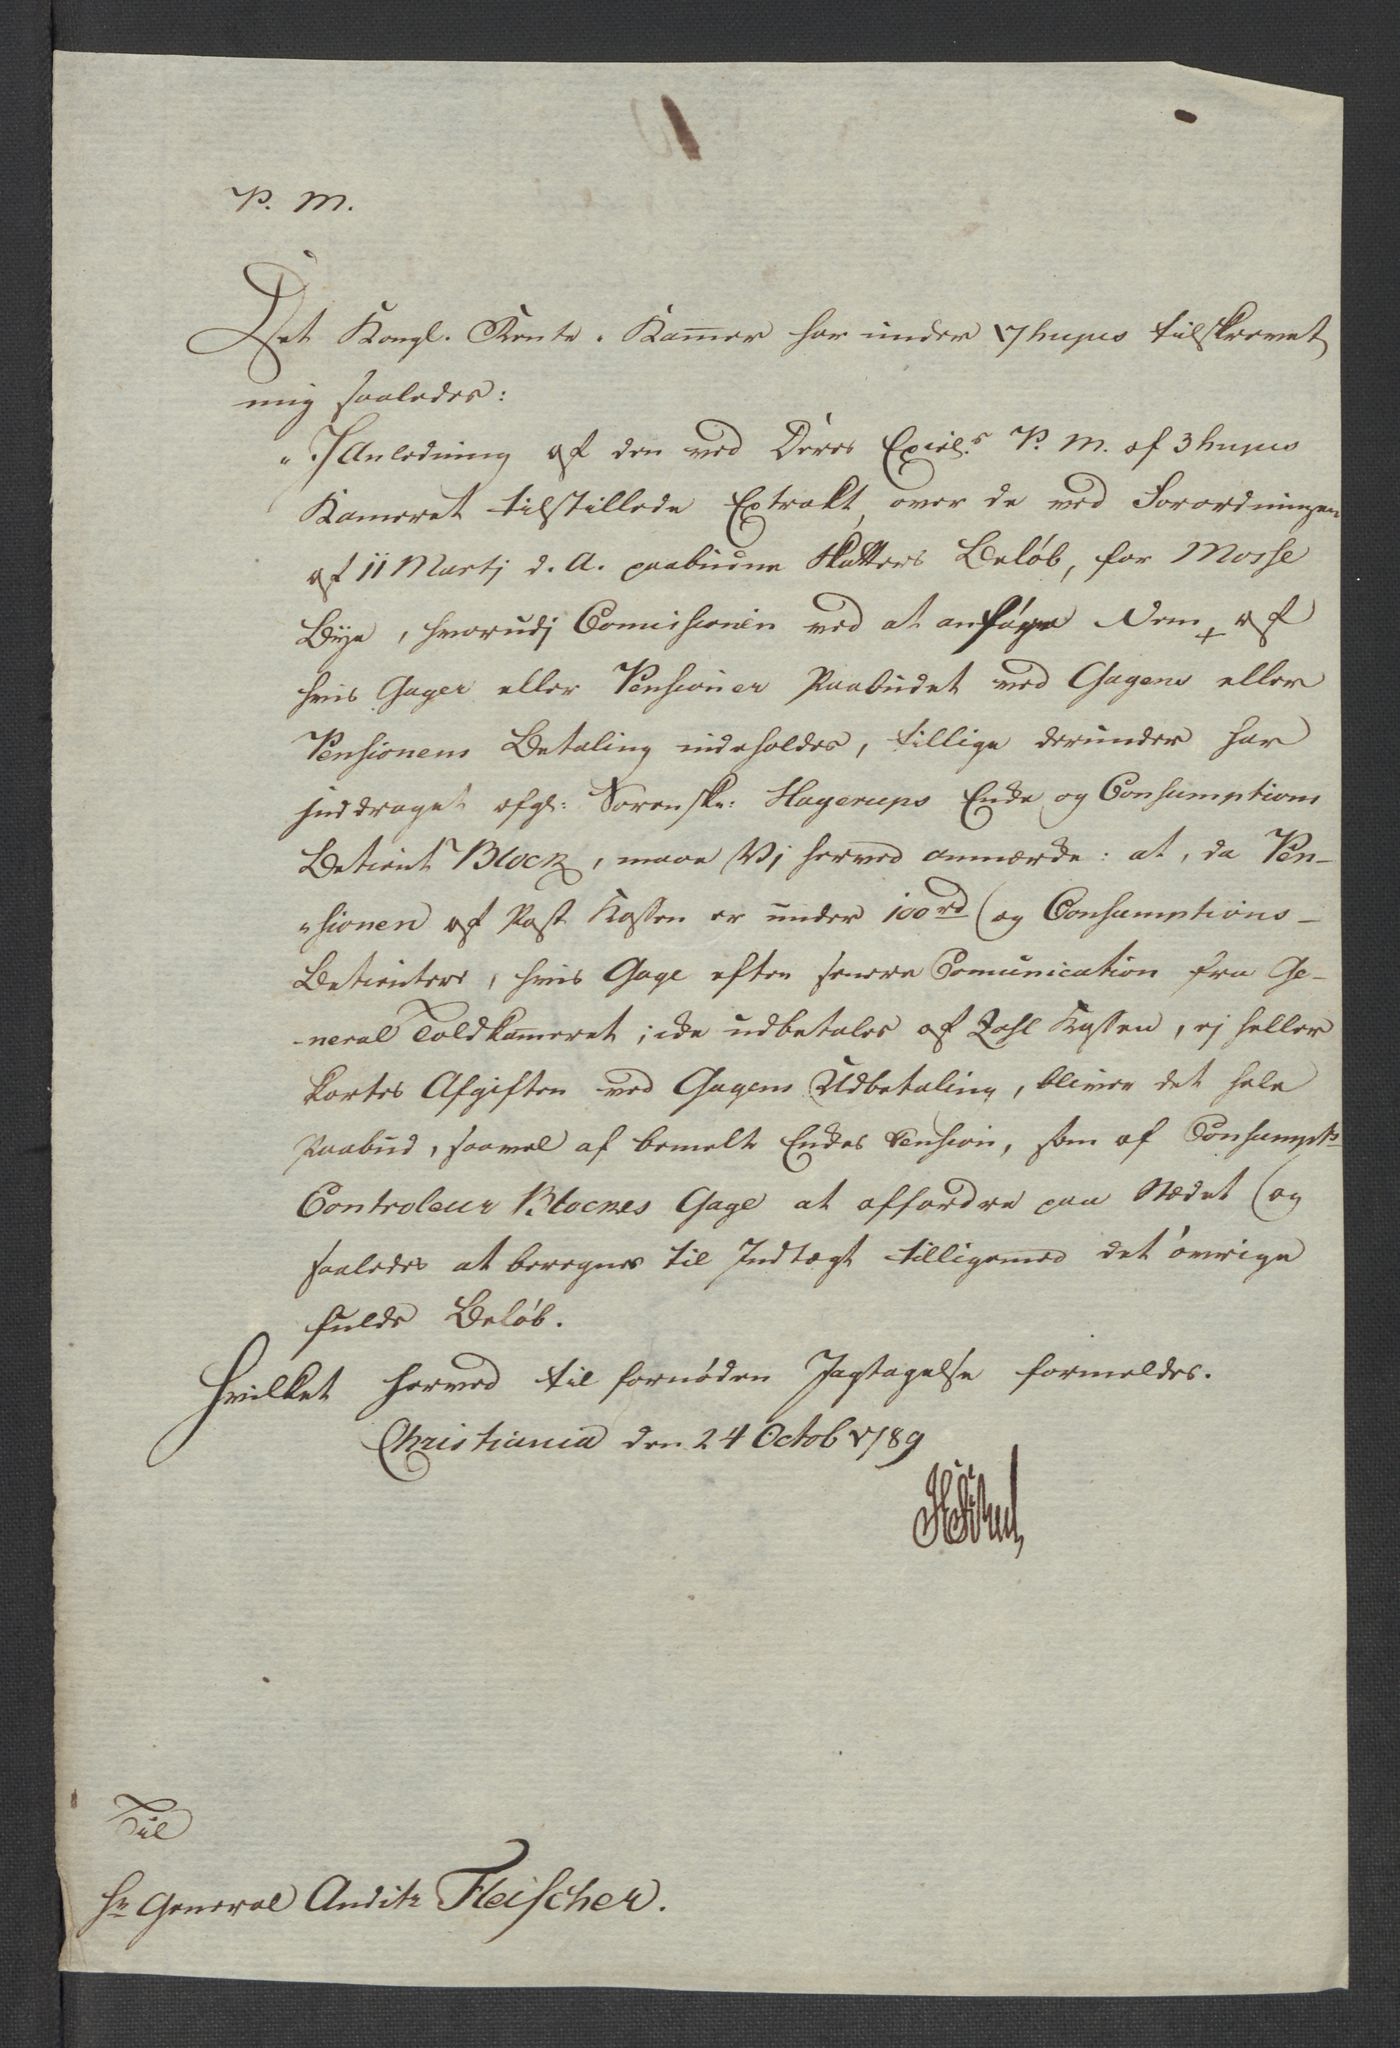 P. M.
Det Kongl. Rente-Kammer har under 17 hujus tilskrevet
mig saaledes:
"I Anledning af den ved Deres Excel.s P. M. af 3 hujus
Kameret tilstillede Extrakt over de ved Forordningen
af 11 Martj d. A. paabudne Skatters Beløb, for Mosse
Bye, hvorudj Comissionen ved at anføre dem + af
hvis Gager eller Pensioner Paabudet ved Gagens eller
Pensionens Betaling indeholdes, tillige derunder har
inddraget afg: Sorenskr: Hagerups Enke og Consumptions
Betient Block, maae Vj herved anmærke: at, da Pen-
"sionen af Post Kassen er under 100 rd (og Consumptions-
Betientere, hvis Gage efter senere Comunication fra Ge-
-neral Toldkameret, ike udbetales af Zahl Kassen, ej heller
kortes Afgiften ved Gagens Udbetaling, bliver det hele
Paabud, saavel af bemelte Enkes Pension, som af Consumpt:
Controleur Blockes Gage at affordre paa Stædet (og
saaledes at beregnes til Indtægt tilligemed det øvrige
fulde Beløb.
Hvilket herved til fornøden Jagtagelse formeldes.
Christiania den 24 Octob 1789
Til
Hr General Auditr Fleischer.